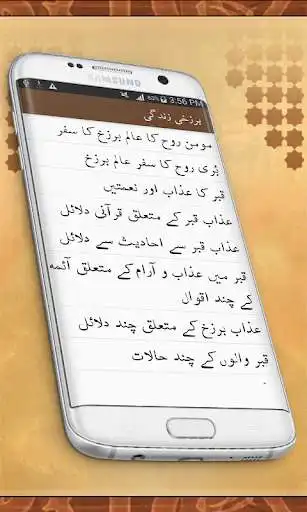 SAMSUNG
83% 3:56 PM
برزخی زندگی
مومن روح کا عالم برزخ کا سفر
بُری روح کا سفر عالم برزخ
قبر کا عذاب اور نعمتیں
عذاب قبر کے متعلق قرآنی دلائل
عذاب قبر سے احادیث سے دلائل
قبر میں عذاب و آرام کے متعلق آئمہ
کے چند اقوال
عذاب برزخ کے متعلق چند دلائل
قبر والوں کے چند حالات